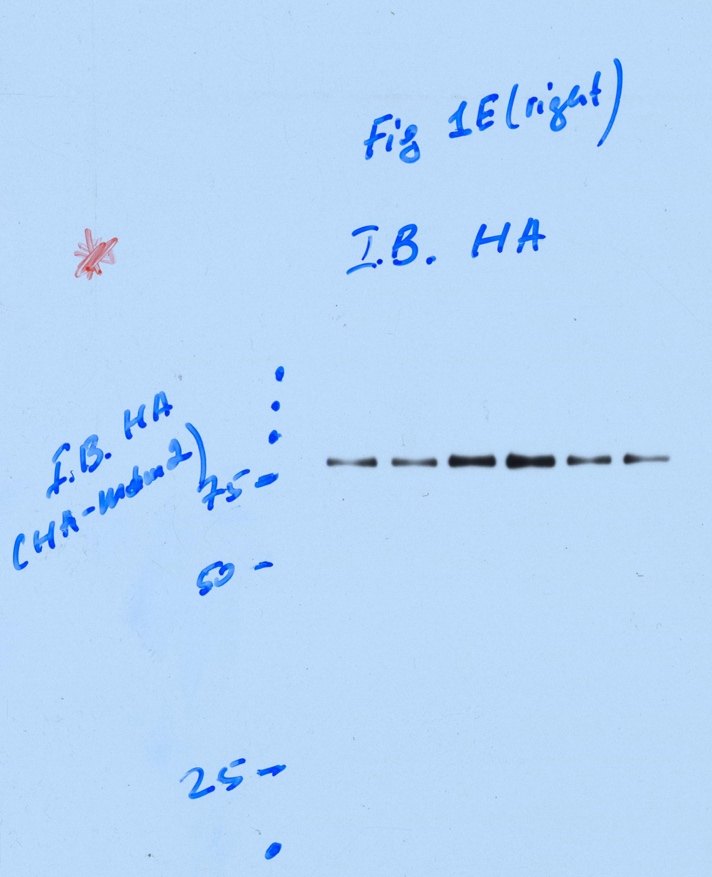 Fig 1E (right)
I.B. HA
I.B. HA
(HA-Mdm2)
75-
50-
25-